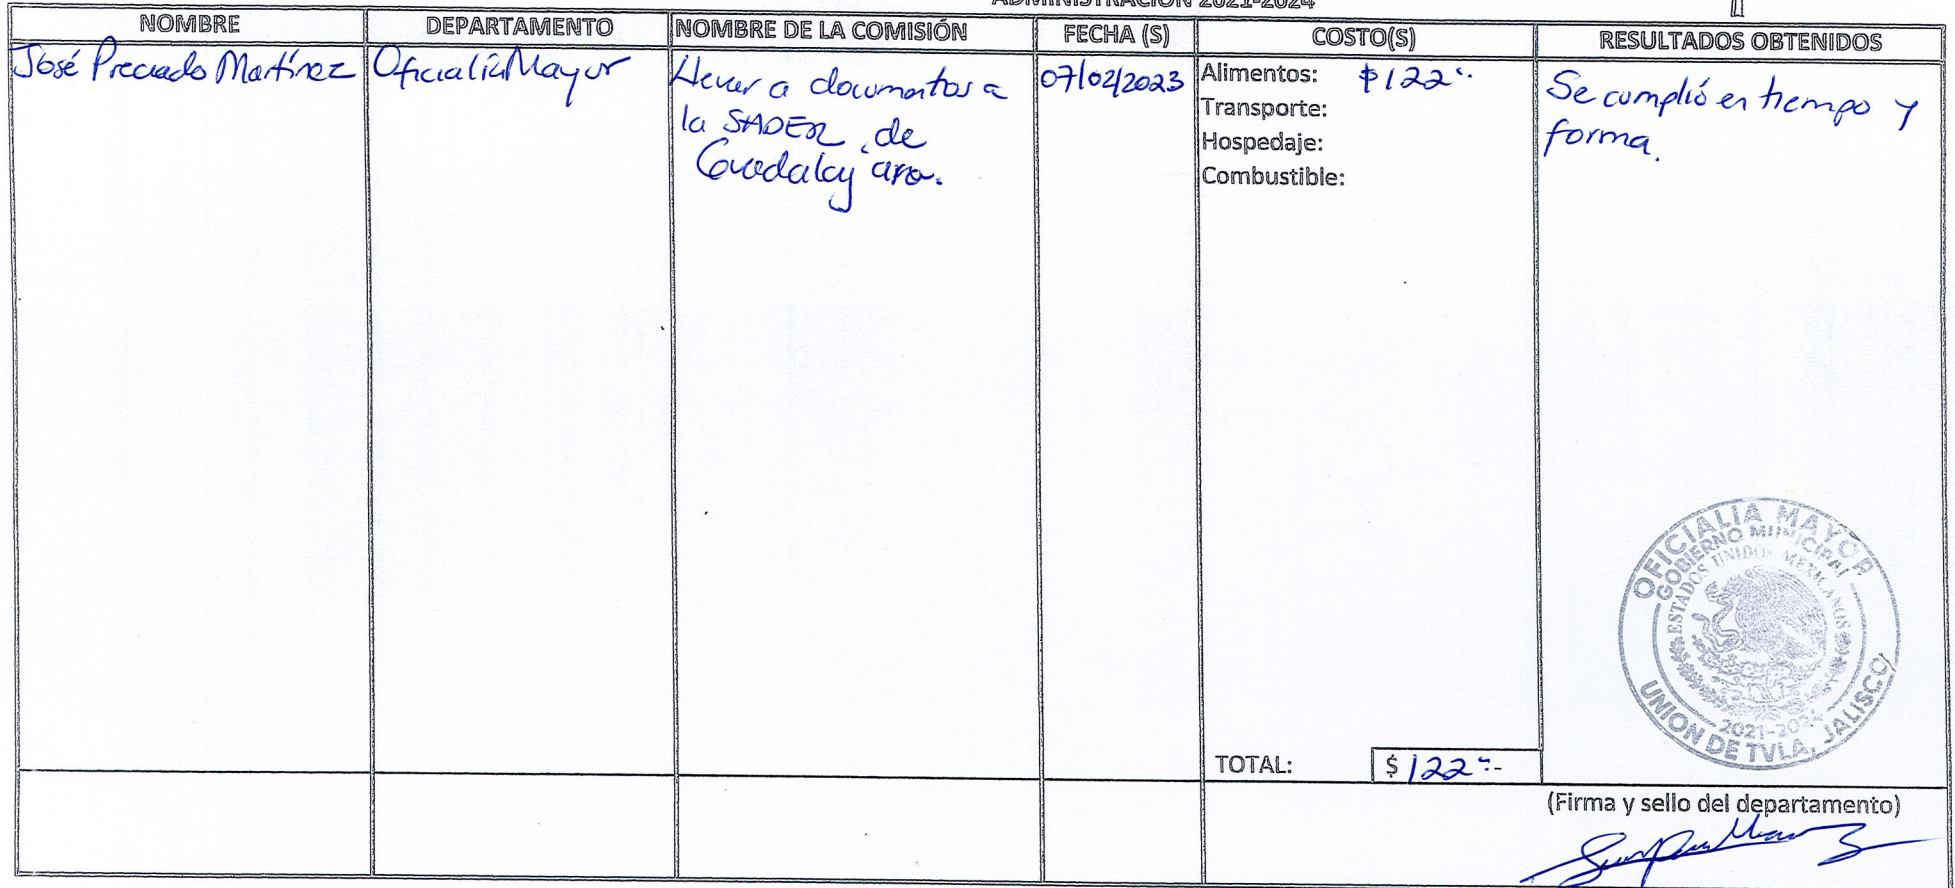 ADMINISTRACIÓN 2021-2024
NOMBRE DEPARTAMENTO NOMBRE DE LA COMISIÓN FECHA (S) COSTO(S) RESULTADOS OBTENIDOS
José Preciado Martínez
Oficialía Mayor
Llevar a documentos a
la SADER de
Guadalajara.
07/02/2023
Alimentos: $122.-
Transporte:
Hospedaje:
Combustible:
Se cumplió en tiempo y
forma.
TOTAL: $ 122.-
OFICIALIA MAYOR
GOBIERNO MUNICIPAL
ESTADOS UNIDOS MEXICANOS
2021-2024
UNION DE TVLA, JALISCO
(Firma y sello del departamento)